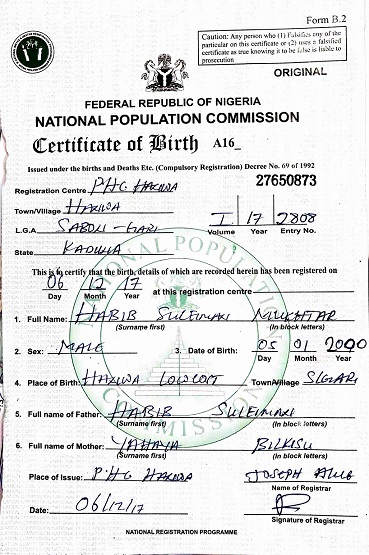 Form B.2
Caution: Any person who (1) Falsifies any of the
particular on this certificate or (2) uses a falsified
certificate as true knowing it to be false is liable to
prosecution
ORIGINAL
FEDERAL REPUBLIC OF NIGERIA
NATIONAL POPULATION COMMISSION
Certificate of Birth A16_
Issued under the births and Deaths Etc. (Compulsory Registration) Decree No. 69 of 1992
Registration Centre PHC HAKIWA 27650873
Town/Village HAKIWA
L.G.A SABON-GARI I 17 2808
Volume Year Entry No.
State KADUNA
This is to certify that the birth, details of which are recorded herein has been registered on
06 12 17 at this registration centre
Day Month Year
1. Full Name: HABIB SULEIMAN MUKHTAR
(Surname first) (In block letters)
2. Sex: MALE 3. Date of Birth: 05 01 2000
Day Month Year
4. Place of Birth: HAKIWA LOWCOST Town/Village
5. Full name of Father: HABIB SULEIMAN
(Surname first) (In block letters)
6. Full name of Mother: YAHAYA BILKISU
(Surname first) (In block letters)
Place of Issue: PHC HAKIWA JOSEPH
Name of Registrar
Date: 06/12/17
Signature of Registrar
NATIONAL REGISTRATION PROGRAMME
NATIONAL POPULATION COMMISSION